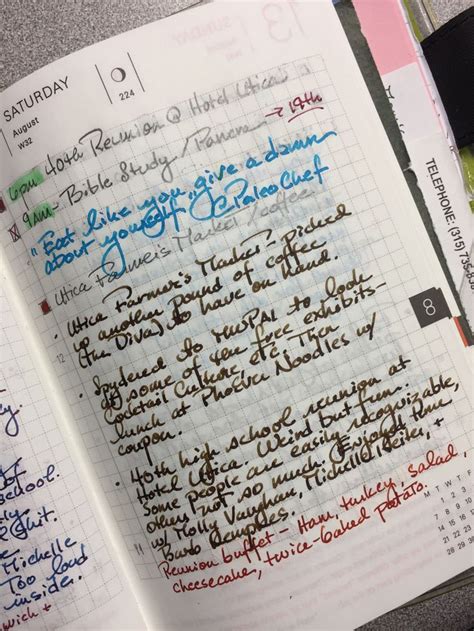 SUNDAY
13
SATURDAY
August
W32
224
6pm 40th Reunion @ Hotel Utica
9am - Bible Study / Panera → 19th
"Eat like you give a damn
about yourself" @PaleoChef
Utica Farmer's Market / coffee
• Utica Farmer's Market - picked
up another pound of coffee
(The Diva) to have on hand.
12
• Spydered to MWPAI to look
at some of the free exhibits -
Cocktail Culture, etc. Then
lunch at Phoever Noodles w/
coupon.
• 40th high school reunion at
Hotel Utica. Weird but fun.
Some people are easily recognizable,
others not so much. Enjoyed time
w/ Molly Vaughan, Michelle +
Barb
Reunion buffet - Ham, turkey, salad,
cheesecake, twice-baked potato.
8
TELEPHONE: (315) 735-
M T W T
1 2 3
7 8 9 10
14 15 16
21 22 23
28 29 30
of
school.
Michelle
Too loud
inside.